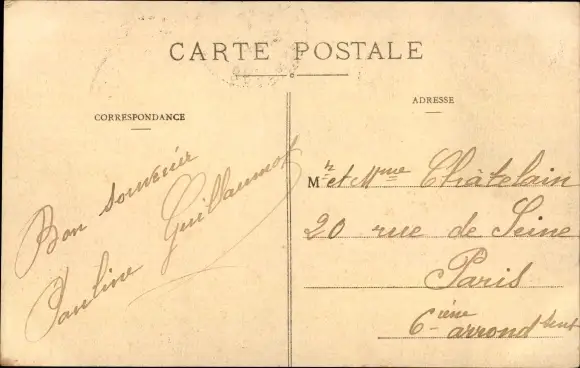 CARTE POSTALE
CORRESPONDANCE
Bon souvenir
Pauline Guillaumot
ADRESSE
Mr et Mme Châtelain
20 rue de Seine
Paris
6ième arrondisment